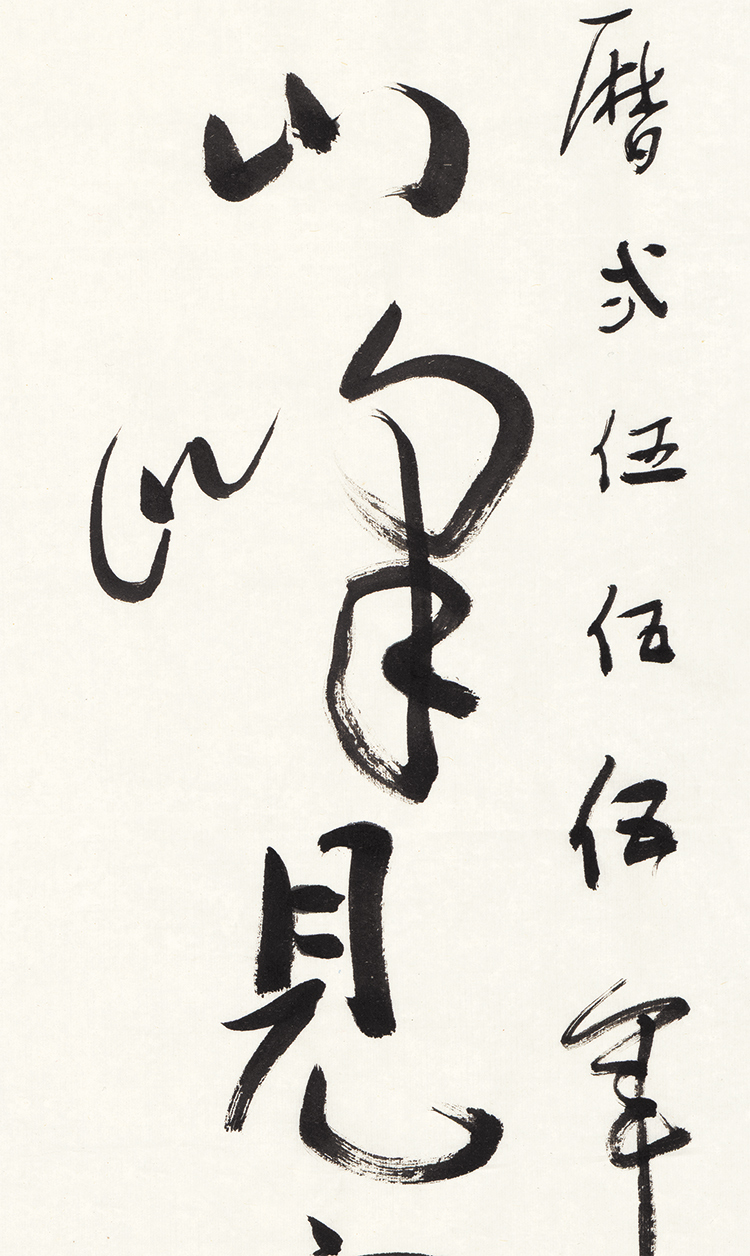 曆弍伍伍伍年
山峰見